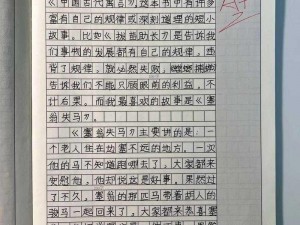 《中国古代寓言》,这本书中有许多
富有自己的规律或深刻道理的短小
故事。比如《揠苗助长》是告诉我
们事物的发展都有自己的规律,违
背了规律,就必然失败,
告诉我们不能只顾眼前的利益,不
计后果。而我最喜欢的故事是《塞
翁失马》。
《塞翁失马》主要讲的是:一
个老人住在边塞不远的地方。一次
他的马不知道跑哪去了,大家都来
安慰他,他却说这是好事。果然过
了不久,塞翁的那匹马带着胡人的
骏马一起回来了。大家都来恭喜塞